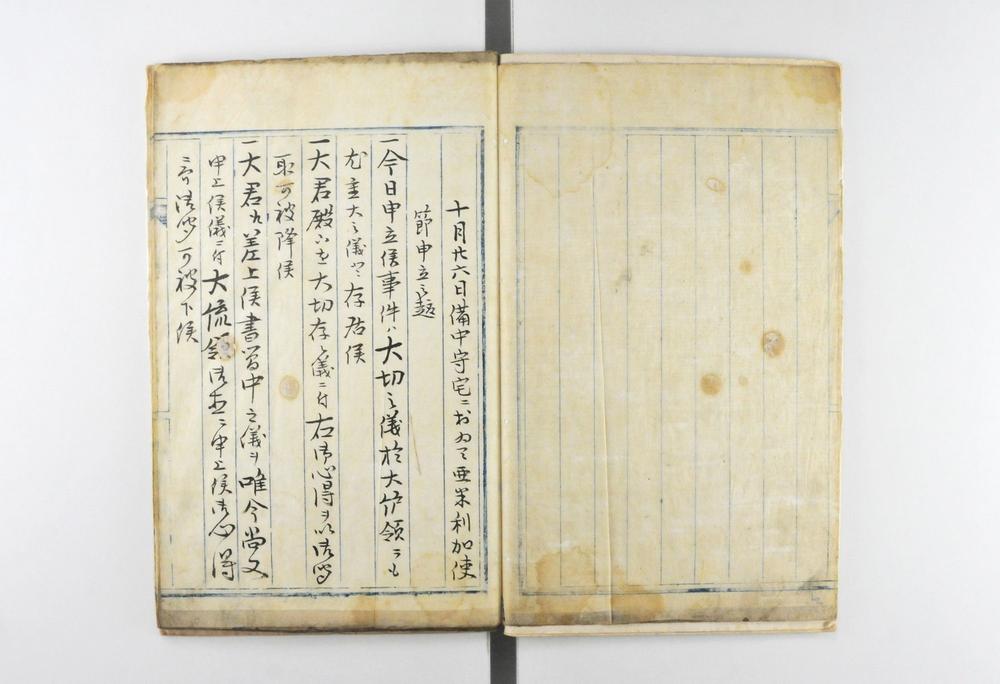 十月廿六日備中守宅ニおゐて亜米利加使
節申立之趣
一今日申立候事件ハ大切之儀於大統領ニも
尤重大之儀と存居候
一大君殿下を大切存候儀ニ付右御心得ヲ以御聞
取可被降候
一大君江差上候書翰中之儀ヲ唯今尚又
申上候儀ニ付大統領御直ニ申上候御心得
ニ而御聞可被下候